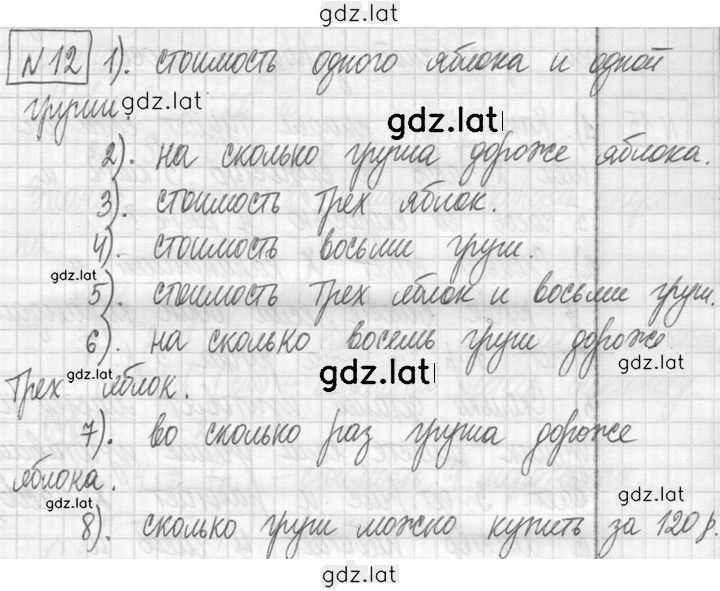 gdz.lat
№12 1). стоимость одного яблока и одной
груши. gdz.lat
gdz.lat
2). на сколько груша дороже яблока.
3). стоимость трех яблок.
4). стоимость восьми груш.
gdz.lat
5). стоимость трех яблок и восьми груш.
6). на сколько восемь груш дороже
gdz.lat
gdz.lat
gdz.lat
трех яблок.
7). во сколько раз груша дороже
яблока.
gdz.lat
gdz.lat
8). сколько груш можно купить за 120 р.
gdz.lat